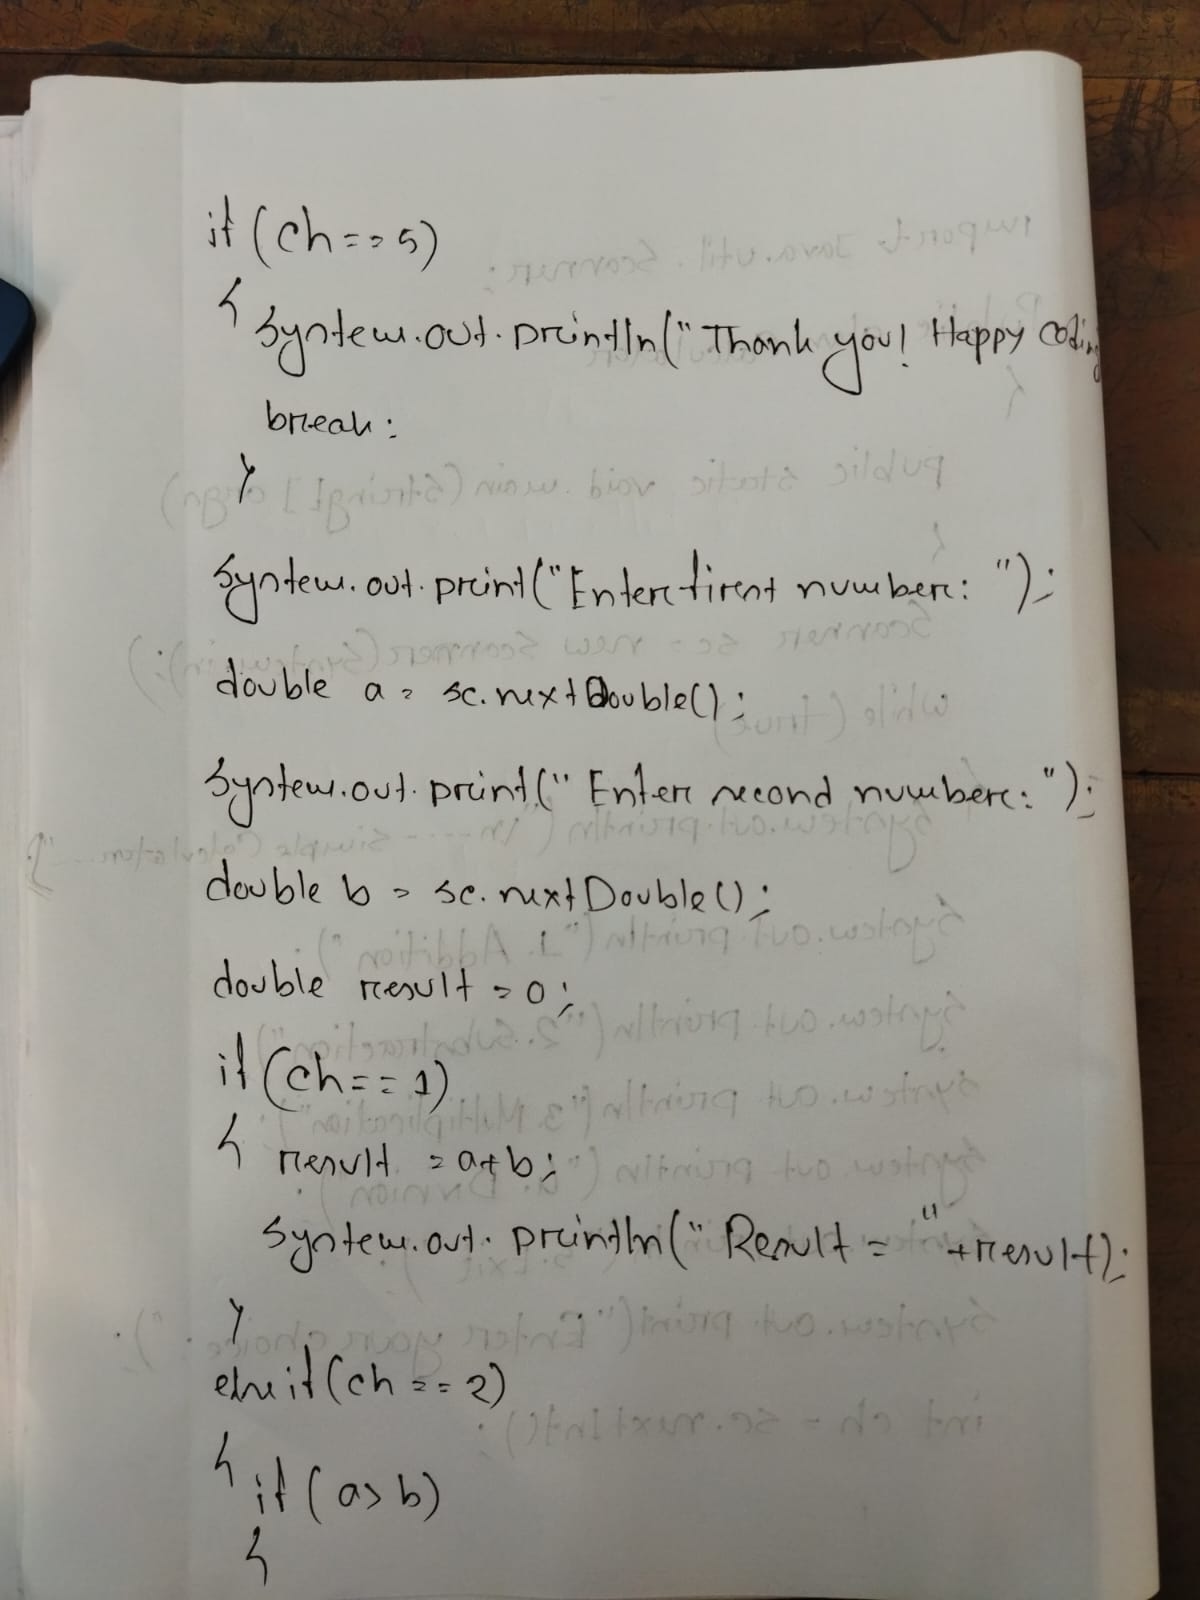 if (ch==5)
{
System.out.println("Thank you! Happy coding
break;
}
System.out.print("Enter first number: ");
double a = sc.nextDouble();
System.out.print("Enter second number: ");
double b = sc.nextDouble();
double result = 0;
if (ch==1)
{ result = a+b;
System.out.println("Result = "+result);
}
else if (ch==2)
{ if (a>b)
{